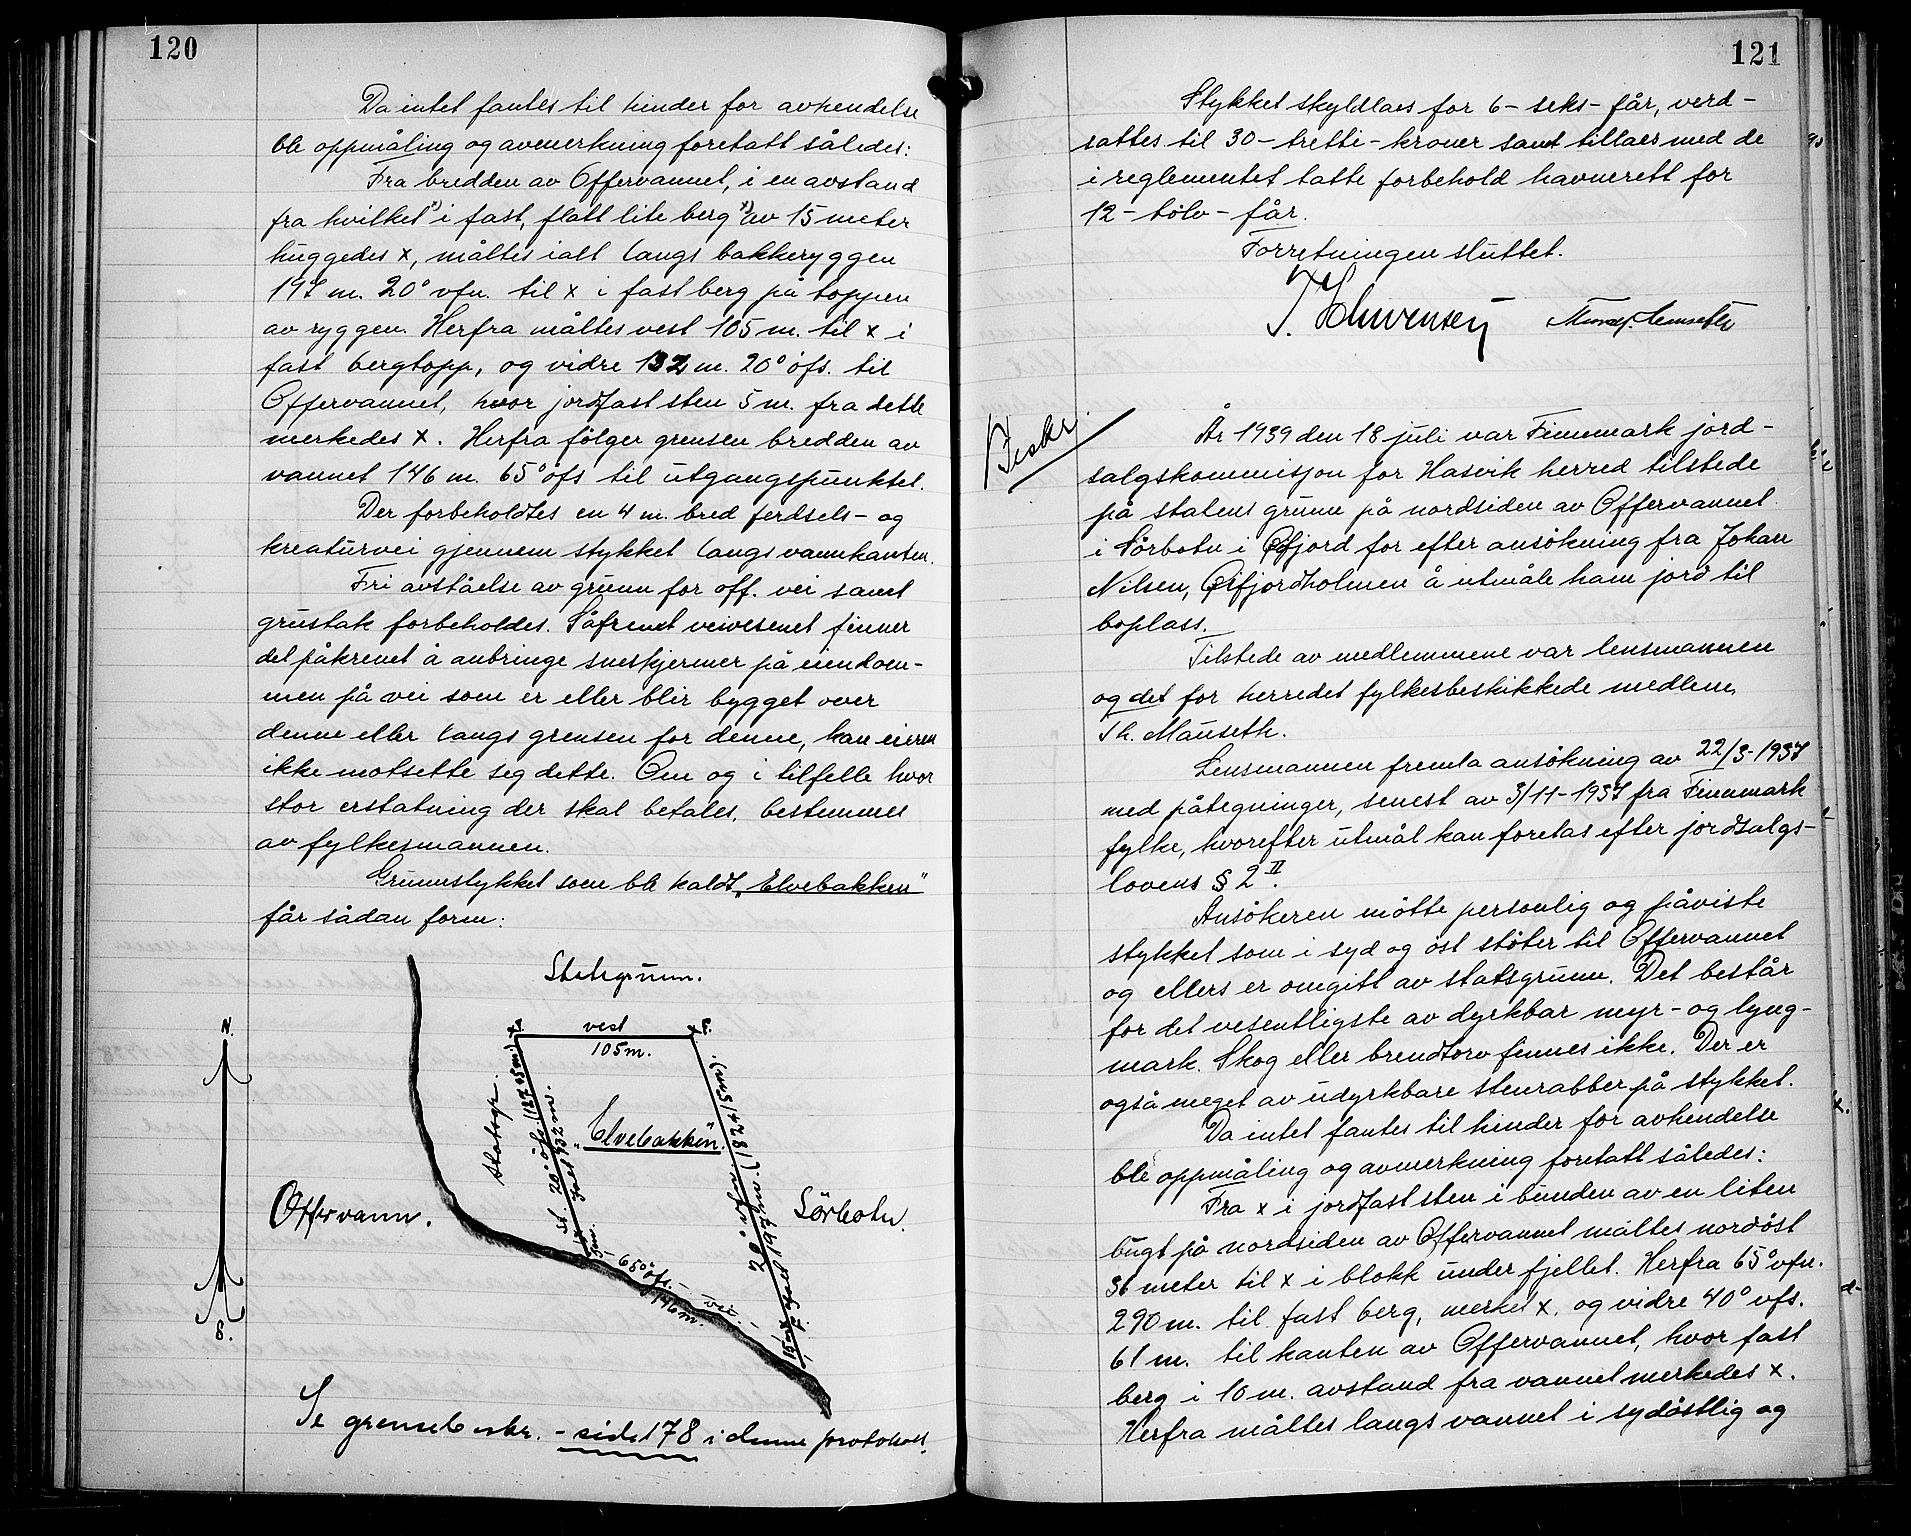 120
Da intet fantes til hinder for avhendelse
ble oppmåling og avmerkning foretatt således:
Fra bredden av Offervannet, i en avstand
fra hvilket 1) i fast, flatt lite berg 1) av 15 meter
huggedes x, måltes ialt langs bakkeryggen
197 m. 20° vfn. til x i fast berg på toppen
av ryggen. Herfra måltes vest 105 m. til x i
fast bergtopp, og vidre 132 m. 20° öfs. til
Offervannet, hvor jordfast sten 5 m. fra dette
merkedes x. Herfra fölger grensen bredden av
vannet 146 m. 65° öfs til utgangspunktet.
Der forbeholdtes en 4 m. bred ferdsels- og
kreaturvei gjennem stykket langs vannkanten.
Fri avståelse av grunn for off. vei samt
grustak forbeholdes. Såfremt veivesenet finner
det påkrevet å anbringe sneskjermer på eiendom-
men på vei som er eller blir bygget over
denne eller langs grensen for denne, kan eieren
ikke motsette seg dette. Om og i tilfelle hvor
stor erstatning der skal betales, bestemmes
av fylkesmannen.
Grunnstykket som ble kaldt „Elvebakken"
får sådan form:
Statsgrunn.
N.
vest
105 m.
Statsgr.
20° öfs. (127+5m)
St. Jas 132 m.
„Elvebakken"
20° vfn. (182+15m)
197 m.
Offervann.
Sörbotn.
5m.
65° öfs.
146 m.
vei.
15 m
S.
Se grensebeskr. - side 178 i denne protokoll.
121
Stykket skyldlaes for 6 - seks - får, verd-
sattes til 30 - tretti - kroner samt tillaes med de
i reglementet tatte forbehold havnerett for
12 - tölv - får.
Forretningen sluttet.
Beskr.
År 1939 den 18 juli var Finnmark jord-
salgskommisjon for Hasvik herred tilstede
på statens grunn på nordsiden av Offervannet
i Sörbotn i Öfjord for efter ansökning fra Johan
Nilsen, Öifjordholmen å utmåle ham jord til
boplass.
Tilstede av medlemmene var lensmannen
og det for herredet fylkesbeskikkede medlem,
Th. Mauseth.
Lensmannen fremla ansökning av 22/3-1937
med påtegninger, senest av 3/11-1937 fra Finnmark
fylke, hvorefter utmål kan foretas efter jordsalgs-
lovens § 2 II.
Ansökeren mötte personlig og påviste
stykket som i syd og öst stöter til Offervannet
og ellers er omgitt av statsgrunn. Det består
for det vesentligste av dyrkbar myr- og lyng-
mark. Skog eller brendtorv finnes ikke. Der er
også meget av udyrkbare stenrabber på stykket.
Da intet fantes til hinder for avhendelse
ble oppmåling og avmerkning foretatt således:
Fra x i jordfast sten i bunden av en liten
bugt på nordsiden av Offervannet måltes nordöst
36 meter til x i blokk under fjellet. Herfra 65° vfn.
290 m. til fast berg, merket x, og vidre 40° vfs.
61 m. til kanten av Offervannet, hvor fast
berg i 10 m. avstand fra vannet merkedes x.
Herfra måltes langs vannet i sydöstlig og